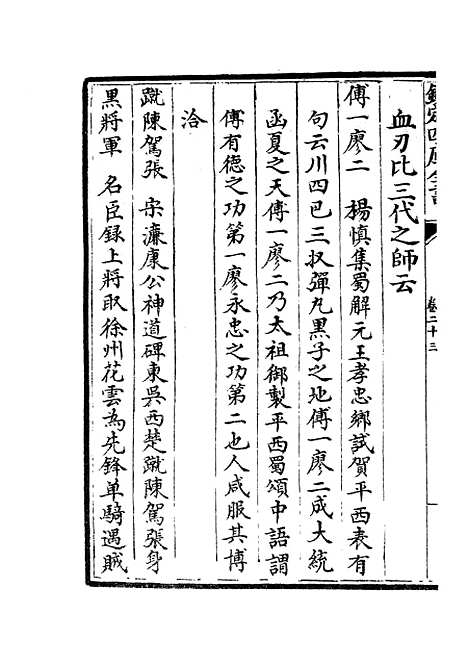 欽定四庫全書
卷二十三
血刃比三代之師云
傅一廖二　楊慎集蜀解元王孝忠鄉試賀平西表有
句云川四巴三収彈丸黒子之地傅一廖二成大統
函夏之天傅一廖二乃太祖御製平西蜀頌中語謂
傅有德之功第一廖永忠之功第二也人咸服其博
洽
蹴陳駕張　宋濂康公神道碑東吳西楚蹴陳駕張身
黒將軍　名臣録上將取徐州花雲為先鋒单騎遇賊